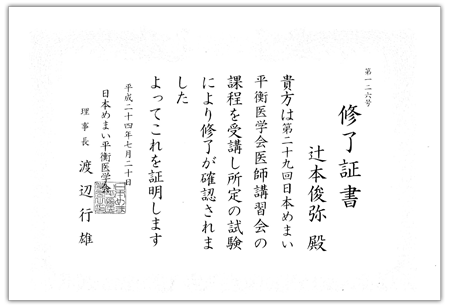 第一二六号
修了証書
辻本俊弥 殿
貴方は第二十九回日本めまい
平衡医学会医師講習会の
課程を受講し所定の試験
により修了が確認されま
した
よってこれを証明します
平成二十四年七月二十日
日本めまい平衡医学会
理事長 渡辺行雄